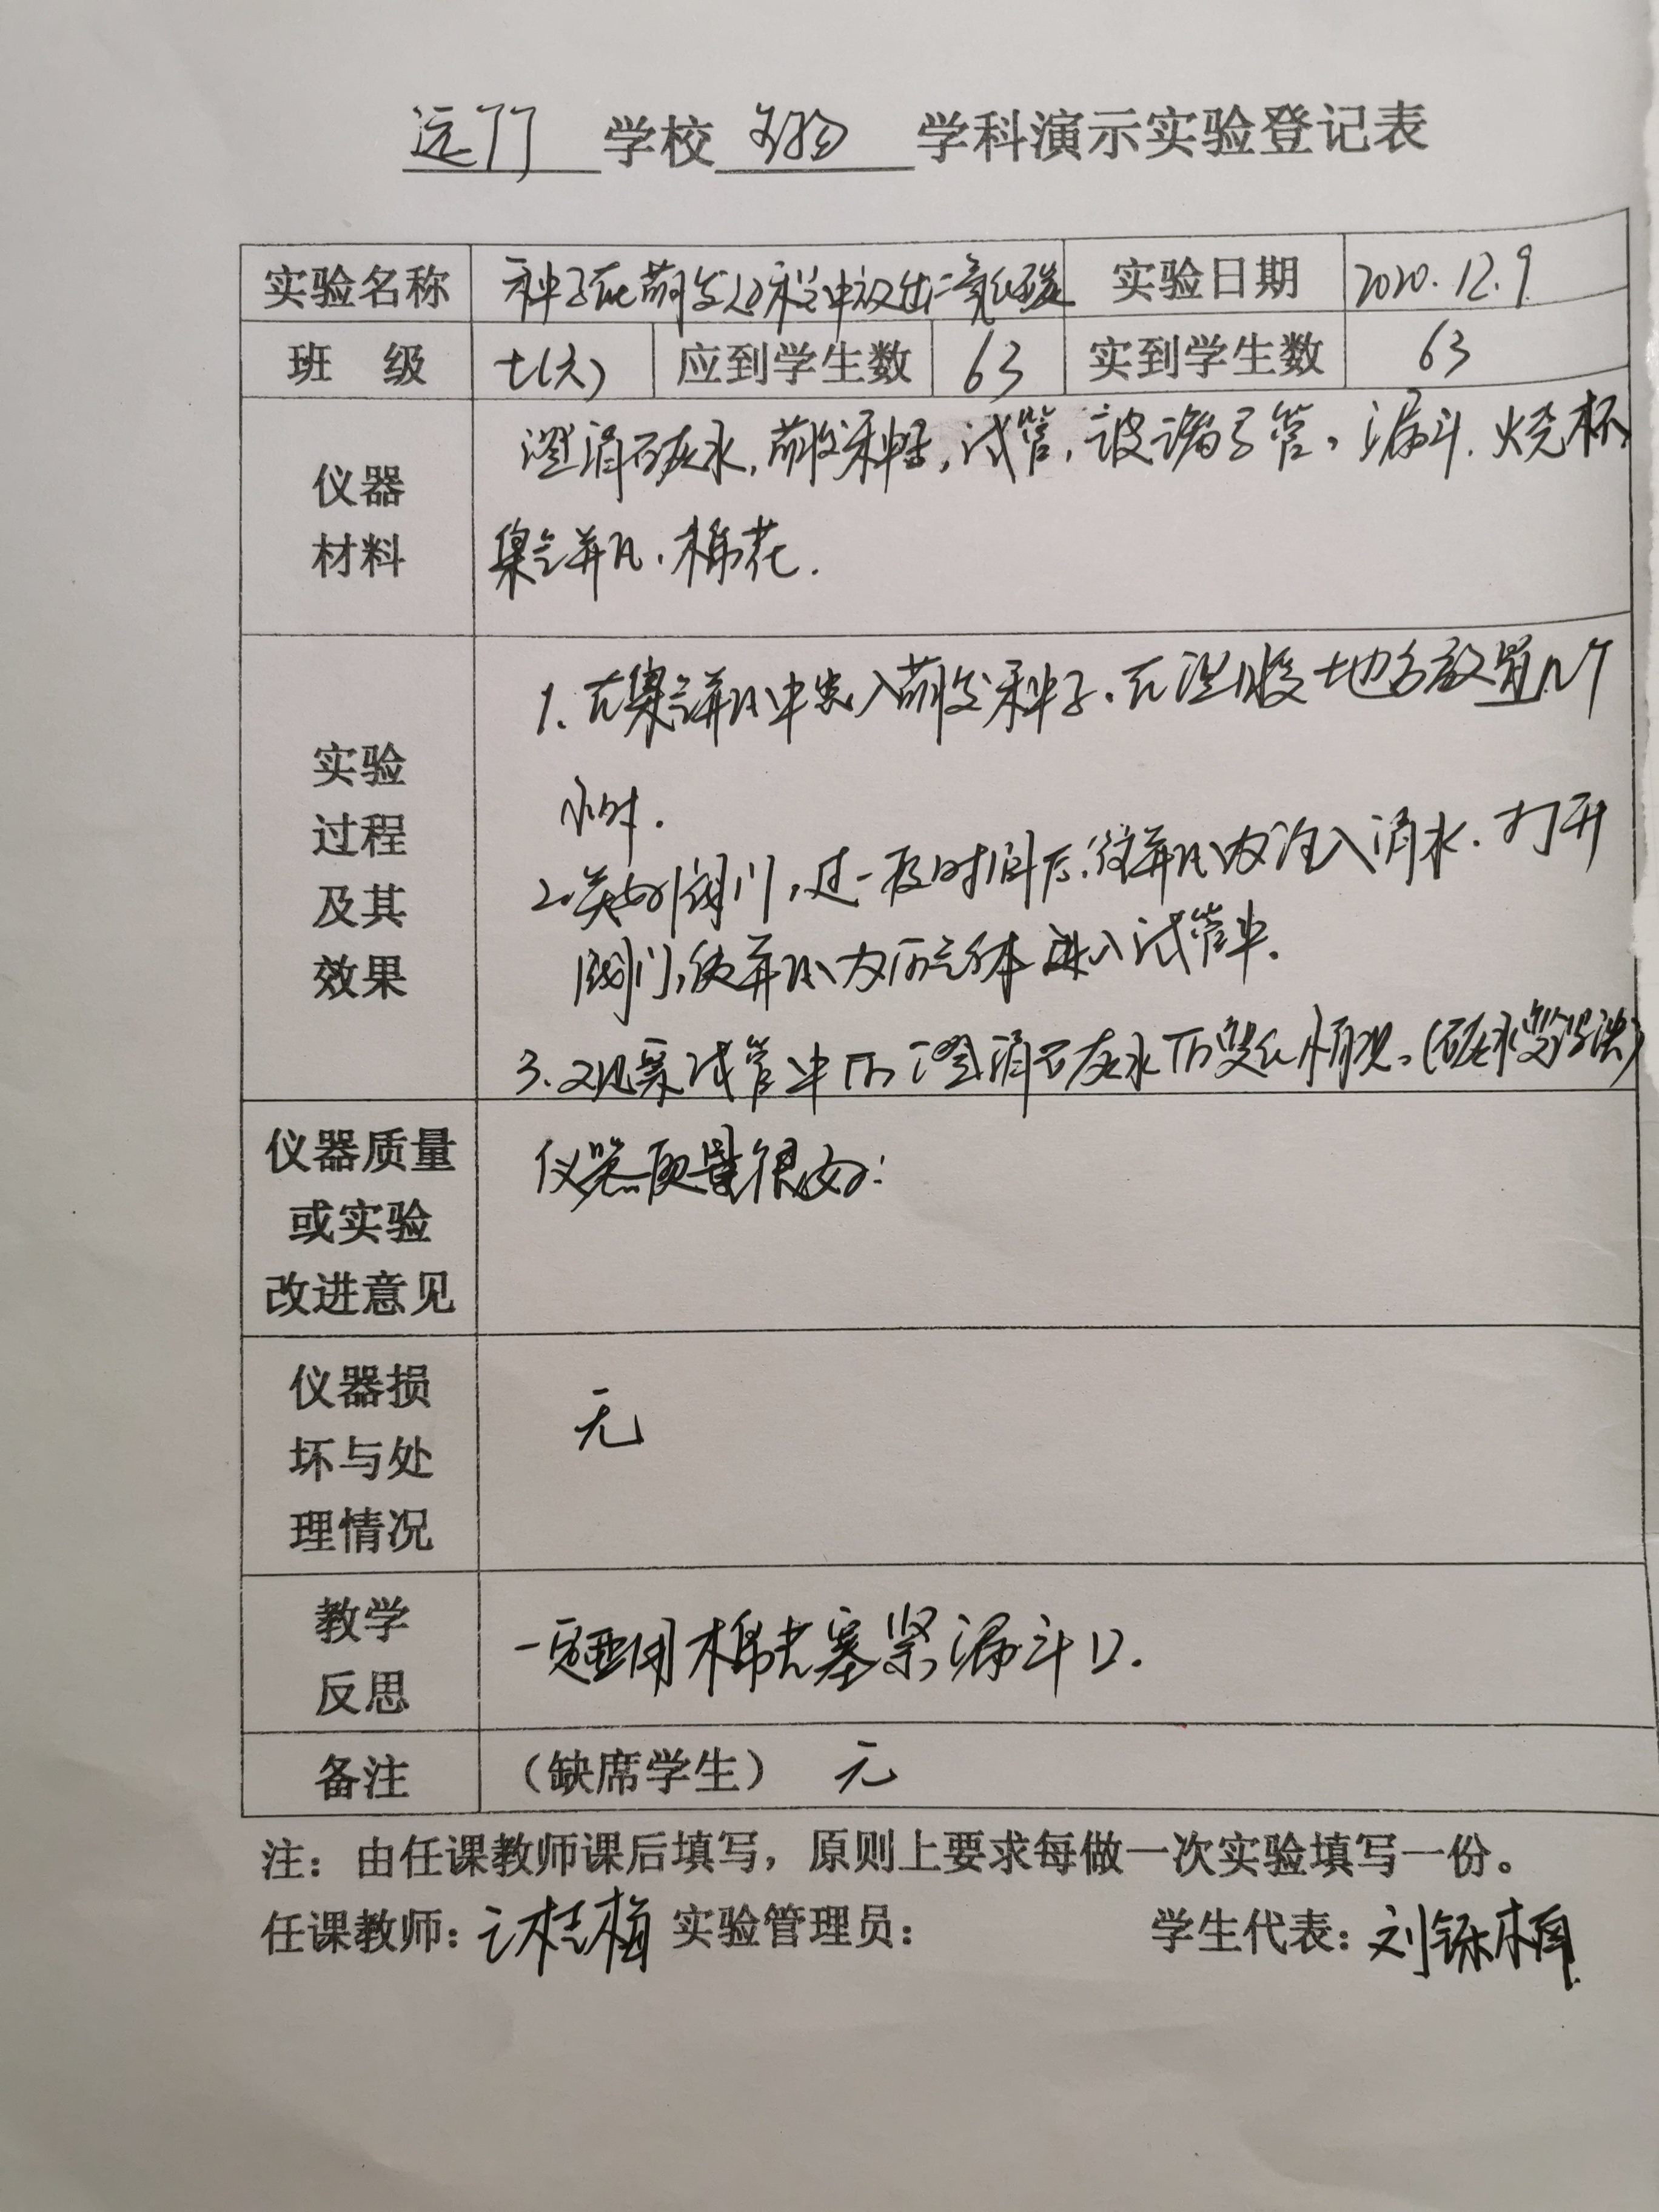 远门 学校 生物 学科演示实验登记表
实验名称 种子在萌发过程中放出二氧化碳 实验日期 2020.12.9
班 级 七(六) 应到学生数 63 实到学生数 63
仪器
材料
澄清石灰水,萌发种子,试管,玻璃导管,漏斗.烧杯
集气瓶.棉花.
实验
过程
及其
效果
1.在集气瓶中装入萌发种子.在温暖地方放置几个
小时.
2.关好阀门,过一段时间后,往瓶内注入清水.打开
阀门,使瓶内的气体进入试管中.
3.观察试管中的澄清石灰水的变化情况。(石灰水变浑浊)
仪器质量
或实验
改进意见
仪器质量很好.
仪器损
坏与处
理情况
无
教学
反思
一定要用棉花塞紧漏斗口.
备注 (缺席学生) 无
注:由任课教师课后填写,原则上要求每做一次实验填写一份。
任课教师: 桂梅 实验管理员: 学生代表: 刘